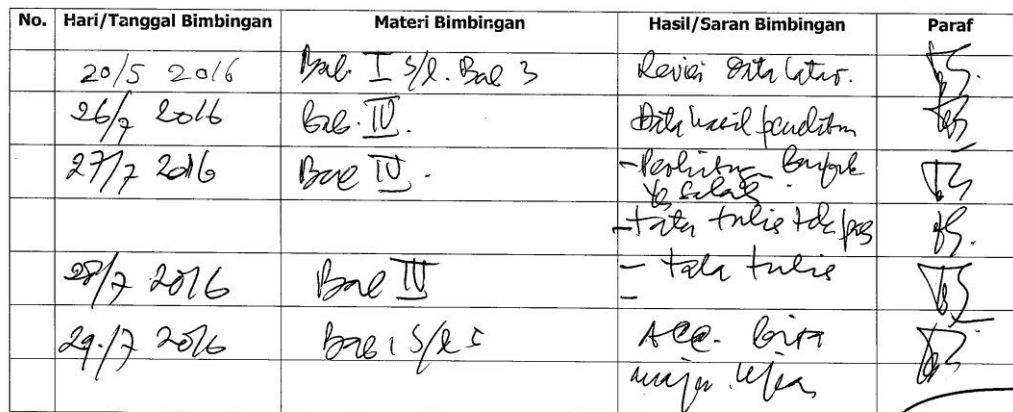 No. Hari/Tanggal Bimbingan Materi Bimbingan Hasil/Saran Bimbingan Paraf
20/5 2016 Bab. I s/d. Bab 3 Revisi Data latar.
26/7 2016 Bab. IV. Data hasil penelitn
27/7 2016 Bab IV. - Perhitungan Banyak
yg salah
- tata tulis tdk pas
28/7 2016 Bab IV - tata tulis
29/7 2016 Bab 1 s/d 5 Acc. bisa
maju ujian